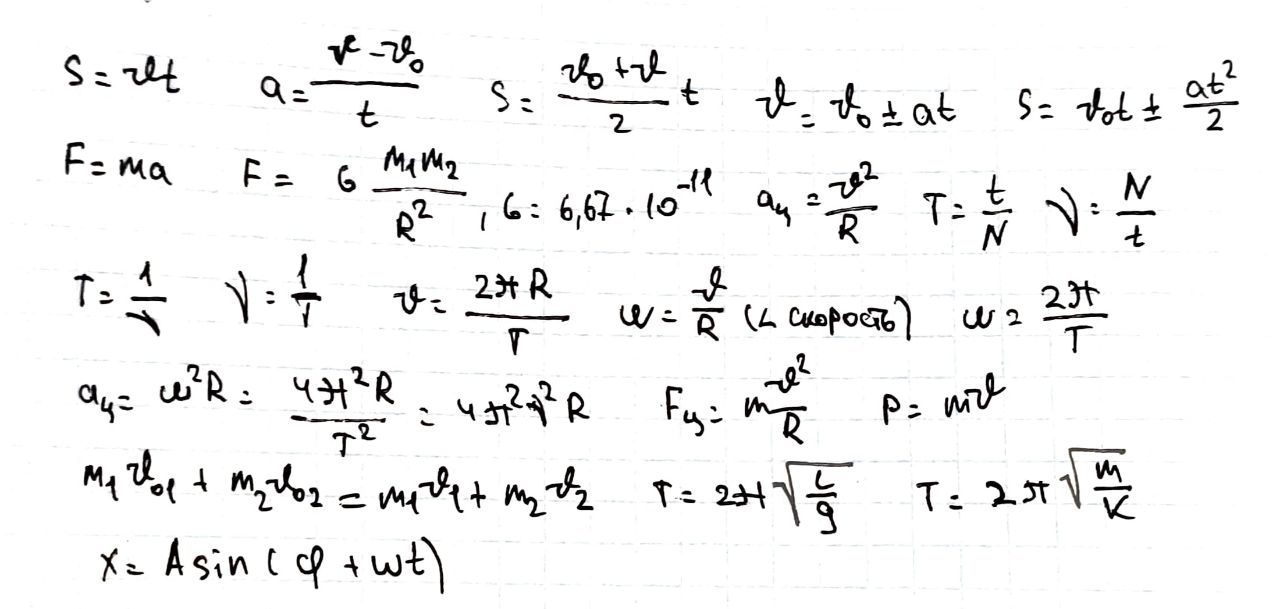 S = υt a = (υ - υ₀)/t S = (υ₀ + υ)/2 t υ = υ₀ ± at S = υ₀t ± at²/2
F = ma F = G m₁m₂/R², G = 6,67 · 10⁻¹¹ aц = υ²/R T = t/N ν = N/t
T = 1/ν ν = 1/T υ = 2πR/T ω = υ/R (∠ скорость) ω = 2π/T
aц = ω²R = 4π²R/T² = 4π²ν²R Fц = m υ²/R P = mυ
m₁υ₀₁ + m₂υ₀₂ = m₁υ₁ + m₂υ₂ T = 2π√(L/g) T = 2π√(m/K)
x = A sin (φ + ωt)